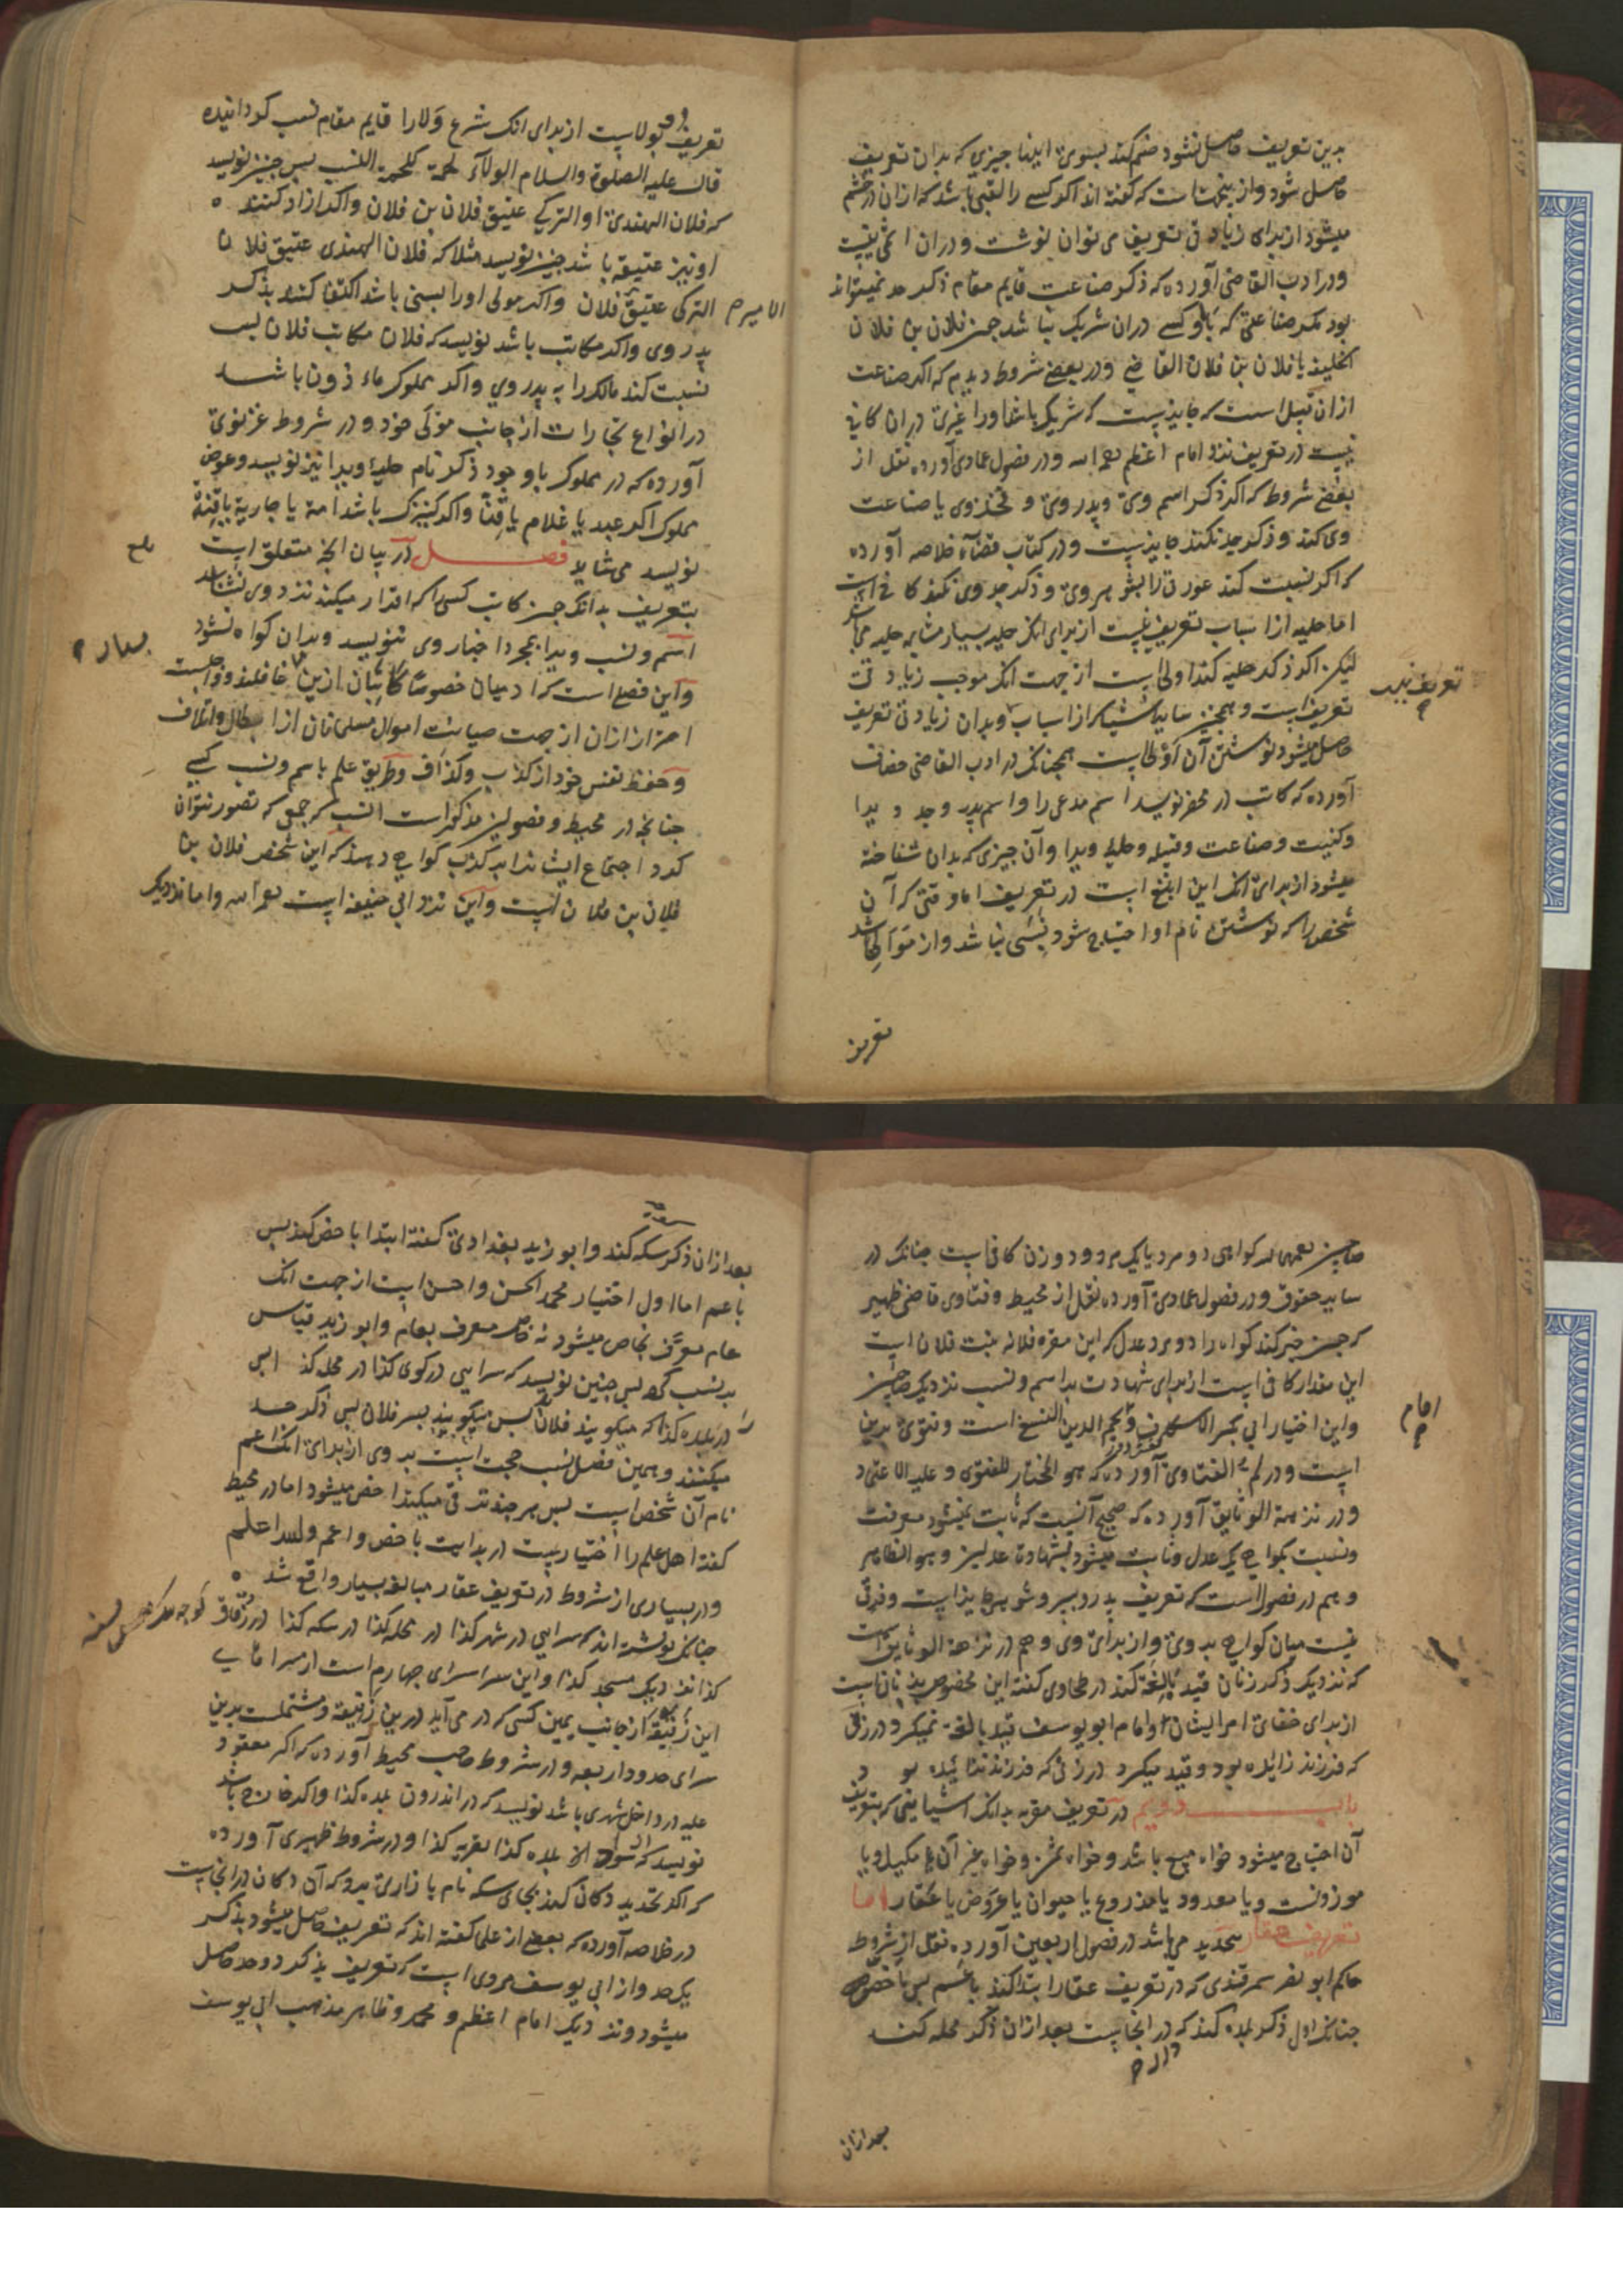 بدین تعریف حاصل نشود ضم کند بسوی اینها چیزی که بدان تعریف
حاصل شود و از ینجهتست که گفته اند اکر کسی را لقبی باشد که ازان در خشم
میشود از برای زیادتی تعریف می توان نوشت و دران اثمی نیست
و در ادب القاضی آورده که ذکر صناعت قایم مقام ذکر جد نمیتواند
بود مکر صناعتی که با او کسی دران شریک نباشد چنر فلان بن فلان
الخلیفه یا فلان بن فلان القاضی و در بعضی شروط دیدیم که اکر صناعت
ازان قبیل است که جایزیست که شریک باشد او را غیری دران کافی
نیست در تعریف نزد امام اعظم رحمه اسه و در فصول عمادی آورده نقل از
بعضی شروط که اکر ذکر اسم وی و پدر وی و فخذ وی یا صناعت
وی کند و ذکر جد نکند جایزیست و در کتاب قضاء خلاصه آورده
که اکر نسبت کند عورتی را بشوهر وی و ذکر جد وی نکند کافی است
اما حلیه از اسباب تعریف نیست از برای انک حلیه بسیار مشابه حلیه می باشد
لیکن اکر ذکر حلیه کند اولی است از جهت انک موجب زیادتی
تعریف است و همچنین سایر اشیا که از اسباب وبدان زیادتی تعریف
تعریف نیست
حاصل میشود نوشتن آن اولی است همچنانک در ادب القاضی خصاف
آورده که کاتب در محضر نویسد اسم مدعی را و اسم پدر و جد ویرا
و کنیت و صناعت و قبیله و حلیه ویرا و آن چیزی که بدان شناخته
میشود از برای انک این ابلغ است در تعریف اما وقتی که آن
شخص را که نوشتن نام او احتیاج شود نسبی نباشد و از موالی باشد
تعریف
تعریف وی بولاست از برای انک شرع ولا را قایم مقام نسب کردانیده
قال علیه الصلوة والسلام الولاء لحمة کلحمة النسب بس چنین نویسد
که فلان الهندی او الترکی عتیق فلان بن فلان و اکر ازاد کننده
او نیز عتیقه باشد چنین نویسد مثلا که فلان الهندی عتیق فلان
الترکی عتیق فلان و اکر مولی او را نسبی باشد اکتفا کنند بذکر
الامیر
پدر وی و اکر مکاتب باشد نویسد که فلان مکاتب فلان بس
نسبت کند مالک را به پدر وی و اکر مملوک ماءذون باشد
در انواع تجارات از جانب مولی خود و در شروط غزنوی
آورده که در مملوک با وجود ذکر نام حلیه ویرا نیز نویسد و عوض
مملوک اکر عبد یا غلام یا قناً و اکر کنیزک باشد امة یا جاریة یا قنة
نویسد می شاید فصل در بیان انچ متعلق است
بتعریف بدانک چنر کاتب کسی را که اقرار میکند نزد وی نشناسد
اسم و نسب ویرا بمجرد اخبار وی ننویسد وبدان کواه نشود
و این فصلی است که ادمیان خصوصا کاتبان ازین غافلند و واجبست
بسیار
احتراز ازان از جهت صیانت اموال مسلمانان از ابطال و اتلاف
و حفظ نفس خود از کذب و کذاف و طریق علم باسم و نسب کسی
چنانچه در محیط و فصولین مذکور است انست که جمعی که تصور نتوان
کرد اجتماع ایشانرا بر کذب کواهی دهند که این شخص فلان بن
فلان بن فلان است و این نزد ابی حنیفه است رحمه اسه و اما نزدیک
صاحبین رحمهما اله کواهی دو مرد یا یک مرد و دو زن کافی است چنانک در
سایر حقوق و در فصول عمادی آورده نقل از محیط و فتاوی قاضی ظهیر
که چنر خبر کند کواه را دو مرد عدل که این مقره فلانه بنت فلان است
این مقدار کافی است از برای شهادت بر اسم و نسب نزدیک صاحبین
و این اختیار ابی بکر الاسکاف و نجم الدین النسفی است و فتوی برین
امام
است و در الفتاوی آورده که هو المختار للفتوی و علیه الاعتماد
و در نزهة الوثایق آورده که صحیح آنست که ثابت نمیشود معرفت
و نسبت بکواهی یک عدل و ثابت میشود بشهادت عدلین و هو الظاهر
و هم در فصول است که تعریف پدر و پسر و شوهر جایز است و فرق
نیست میان کواهی بر وی و از برای وی و هم در نزهة الوثایق است
که نزدیک ذکر زنان قید بالغه کند در طحاوی گفته این مخصوص بزنان است
از برای خفای امر ایشان و امام ابو یوسف قید بالغه نمیکرد در زنی
که فرزند زائیده بود و قید میکرد در زنی که فرزند نزائیده بود
باب دویم در تعریف مقر به بدانک اشیایی که بتعریف
آن احتیاج میشود خواه مبیع باشد و خواه ثمن و خواه غیر آن یا مکیل و یا
موزونست و یا معدود یا مذروع یا حیوان یا عروض یا عقار اما
تعریف عقار بتحدید می باشد در فصول اربعین آورده نقل از شروط
حاکم ابو نصر سمرقندی که در تعریف عقار ابتدا کند باعم بس باخص
چنانک اول ذکر بلده کند که در انجاست بعد ازان ذکر محله کند
بعد ازان
بعد ازان ذکر سکه کند و ابو زید بغدادی گفته ابتدا باخص کند بس
باعم اما اول اختیار محمد الحسن و احسن است از جهت انک
عام معرف بخاص میشود نه خاص معرف بعام و ابو زید قیاس
بر نسب کرده بس چنین نویسد که سرایی در کوی کذا در محله کذا
در بلده کذا که میکویند فلان بس میکویند پسر فلان بس ذکر جد
میکنند و همین فصل نسب حجت است بر وی از برای انک اعم
نام آن شخص است بس هر چند ترقی میکند اخص میشود اما در محیط
گفته اهل علم را اختیار است در بدایت باخص و اعم واسه اعلم
و در بسیاری از شروط در تعریف عقار مبالغه بسیار واقع شد
چنانک نوشته اند که سرایی در شهر کذا در محله کذا در سکه کذا در زقاق
کذا نزدیک مسجد کذا و این سرا سرای چهارم است از سراهای
این زنیقه از جانب یمین کسی که در می آید درین زنیقه و مشتملست برین
سرای حدود اربعه و در شروط صاحب محیط آورده که اکر معقود
علیه در داخل شهری باشد نویسد که در اندرون بلده کذا و اکر خارج باشد
نویسد که بسواد بلده کذا بقریه کذا و در شروط ظهیری آورده
که اکر تحدید دکان کند بجای سکه نام بازاری برد که آن دکان در انجاست
در خلاصه آورده که بعضی از علما گفته اند که تعریف حاصل میشود بذکر
یک حد و از ابی یوسف مروی است که تعریف بذکر دو حد حاصل
میشود و نزدیک امام اعظم و محمد و ظاهر مذهب ابی یوسف